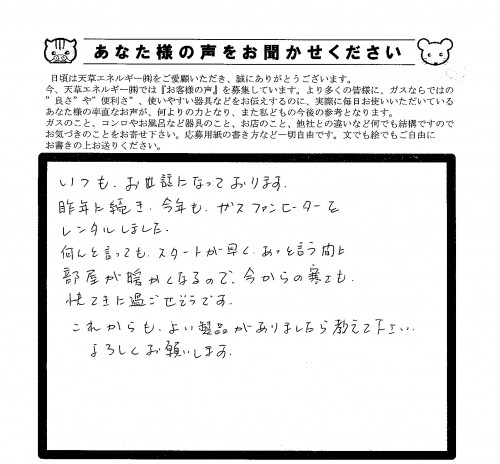 あなた様の声をお聞かせください
日頃は天草エネルギー㈱をご愛顧いただき、誠にありがとうございます。
今、天草エネルギー㈱では『お客様の声』を募集しています。より多くの皆様に、ガスならではの
”良さ”や”便利さ”、使いやすい器具などをお伝えするのに、実際に毎日お使いいただいている
あなた様の率直なお声が、何よりの力となり、また私どもの今後の参考となります。
ガスのこと、コンロやお風呂など器具のこと、お店のこと、他社との違いなど何でも結構ですので
お気づきのことをお寄せ下さい。応募用紙の書き方など一切自由です。文でも絵でもご自由に
お書きの上お送りください。
いつも、お世話になっております。
昨年に続き、今年も、ガスファンヒーターを
レンタルしました。
何んと言っても、スタートが早く、あっと言う間に
部屋が暖かくなるので、今からの寒さも、
快てきに過ごせそうです。
これからも、よい製品がありましたら教えて下さい。
よろしくお願いします。